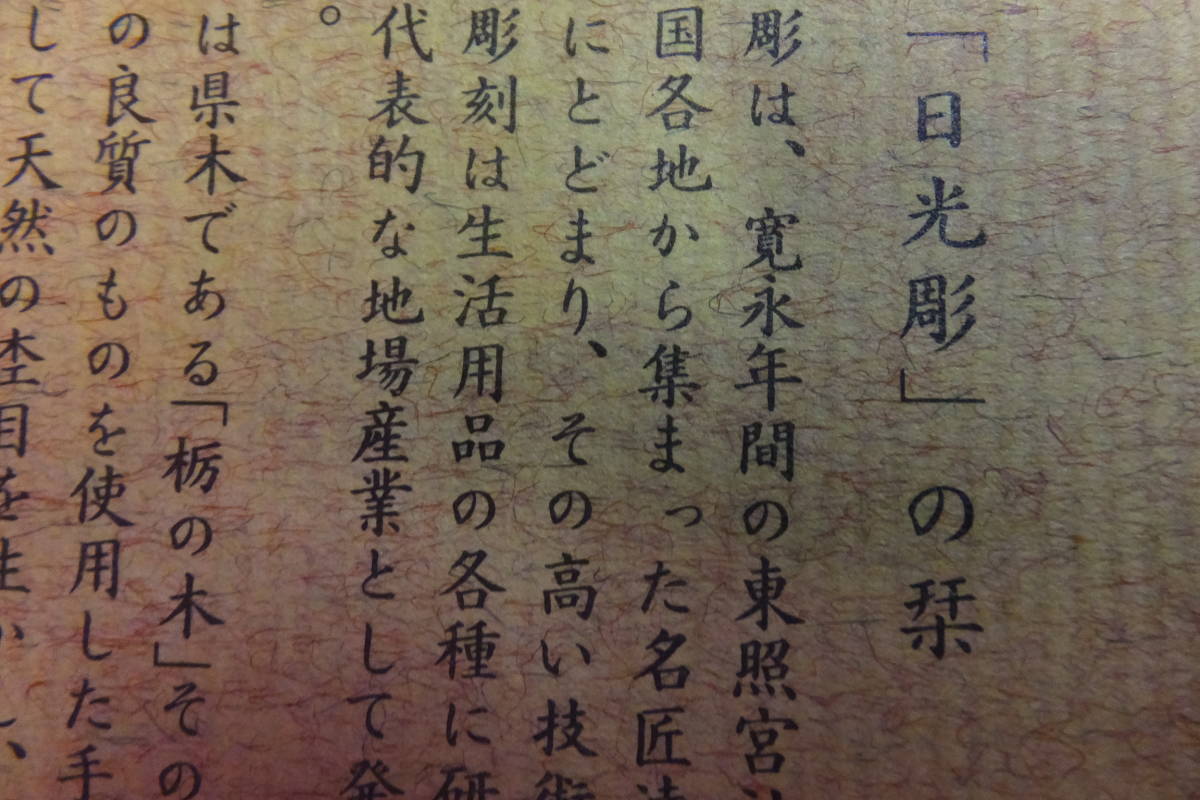 「日光彫」の栞
彫は、寛永年間の東照宮
国各地から集まった名匠達
にとどまり、その高い技術
彫刻は生活用品の各種に研
代表的な地場産業として発
。
は県木である「栃の木」その
の良質のものを使用した手
して天然の杢目を生かし、